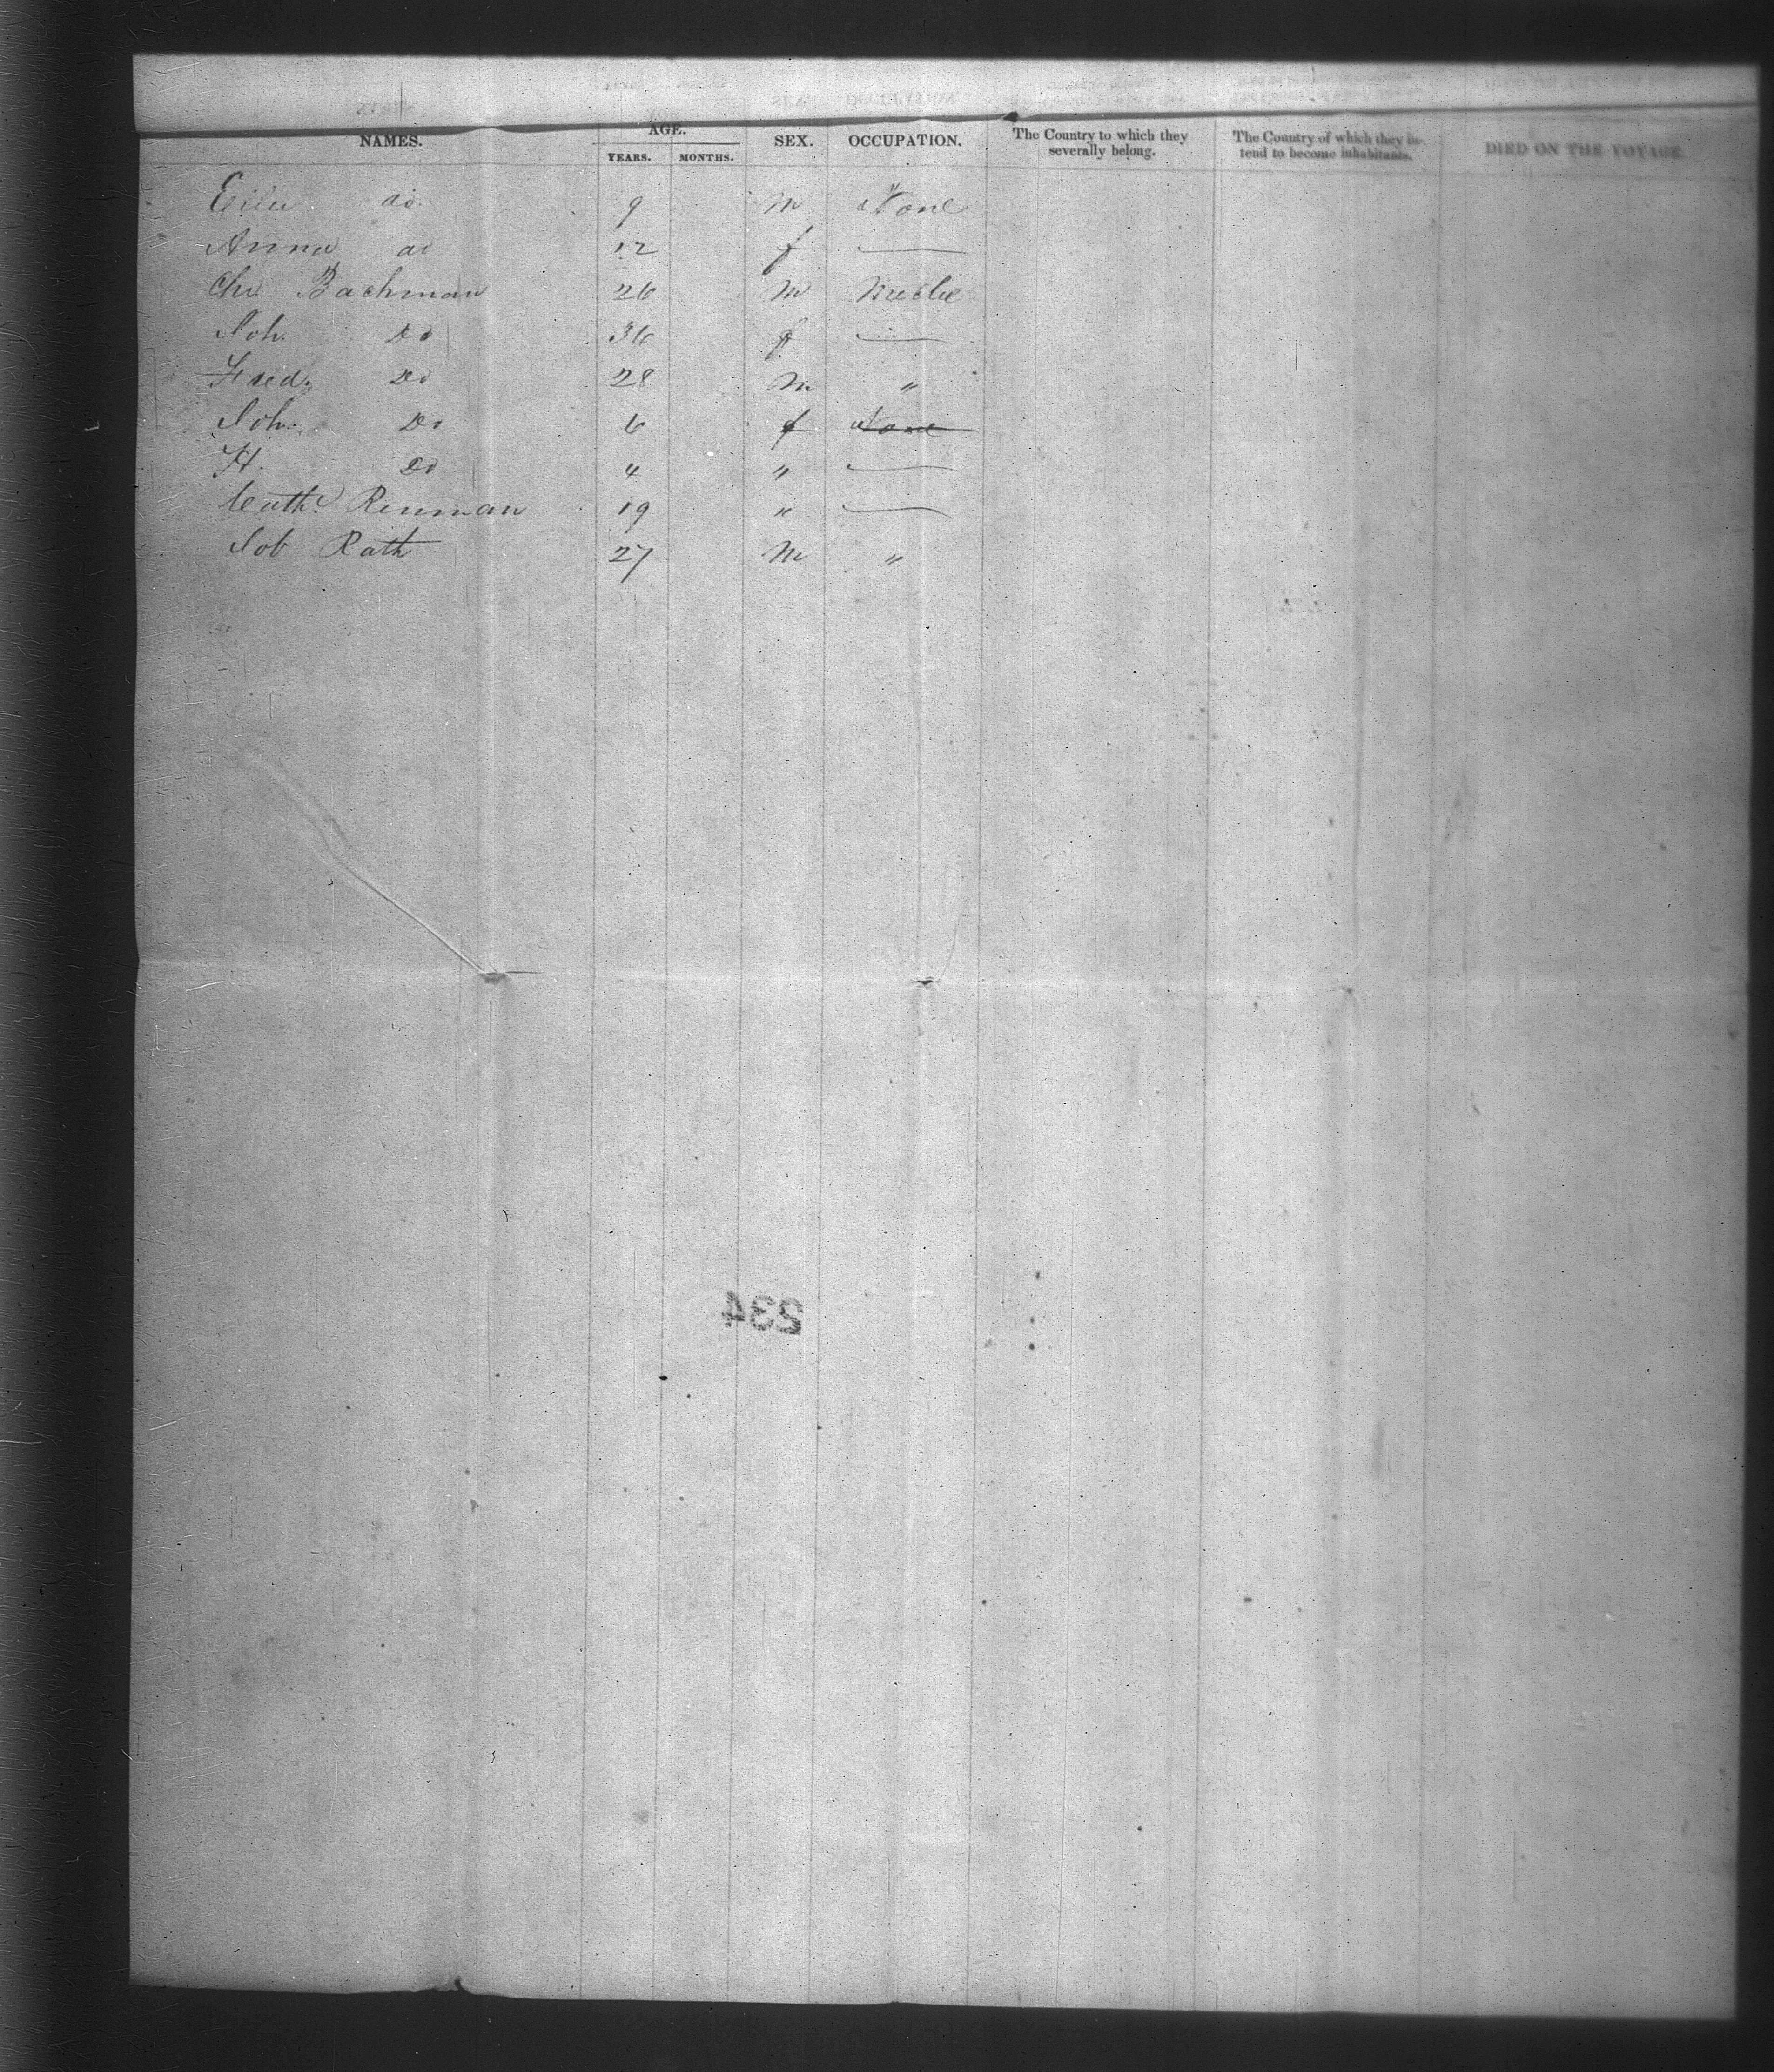 NAMES. AGE. YEARS. MONTHS. SEX. OCCUPATION. The Country to which they severally belong. The Country of which they intend to become inhabitants. DIED ON THE VOYAGE
do 9 m None
Anna do 12 f —
Chr Bachman 26 m
Joh. Do 36 f —
Fred. Do 28 m "
Joh. Do 6 f None
H. Do 4 " —
Cath. Renman 19 " —
Job Rath 27 m "
234